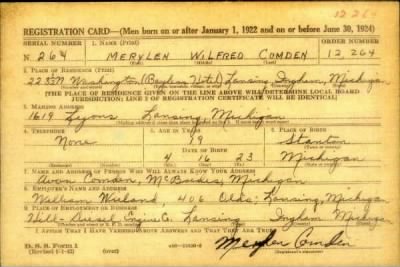 12 264
REGISTRATION CARD—(Men born on or after January 1, 1922 and on or before June 30, 1924)
SERIAL NUMBER 1. NAME (Print) ORDER NUMBER
N 264 MERYLEN WILFRED COMDEN 12,264
2. PLACE OF RESIDENCE (Print)
223½ N. Washington (Hotel) Lansing, Ingham, Michigan
[THE PLACE OF RESIDENCE GIVEN ON THE LINE ABOVE WILL DETERMINE LOCAL BOARD
JURISDICTION; LINE 2 OF REGISTRATION CERTIFICATE WILL BE IDENTICAL]
3. MAILING ADDRESS
1619 Lyons Lansing, Michigan
4. TELEPHONE 5. AGE IN YEARS 6. PLACE OF BIRTH
None 19 Stanton
DATE OF BIRTH
4 16 23 Michigan
7. NAME AND ADDRESS OF PERSON WHO WILL ALWAYS KNOW YOUR ADDRESS
Comden, McBrides, Michigan
8. EMPLOYER'S NAME AND ADDRESS
William Wieland, 406 Olds, Lansing, Michigan
9. PLACE OF EMPLOYMENT OR BUSINESS
Hill-Diesel Engine Co. Lansing Ingham Michigan
I AFFIRM THAT I HAVE VERIFIED ABOVE ANSWERS AND THAT THEY ARE TRUE.
D. S. S. Form 1
Merylen Comden